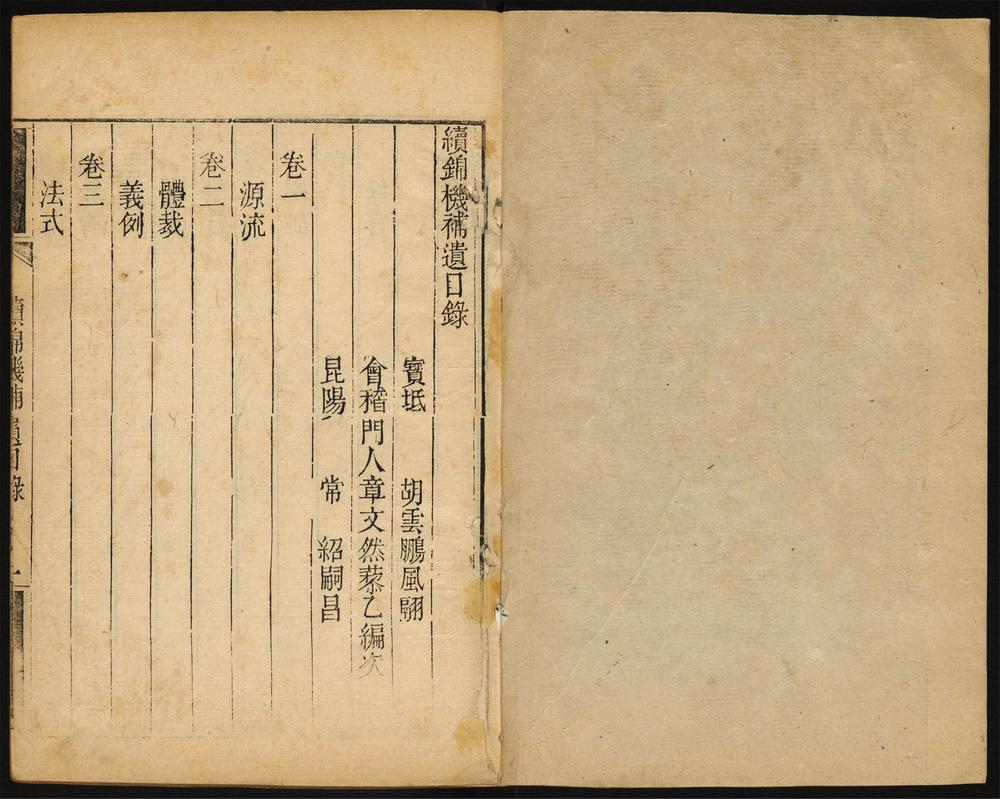 續錦機補遺目錄
寶坻 胡雲鵬風翮
會稽門人章文然藜乙編次
昆陽 常 紹嗣昌
卷一
源流
卷二
體裁
義例
卷三
法式
續錦機補遺目錄 一